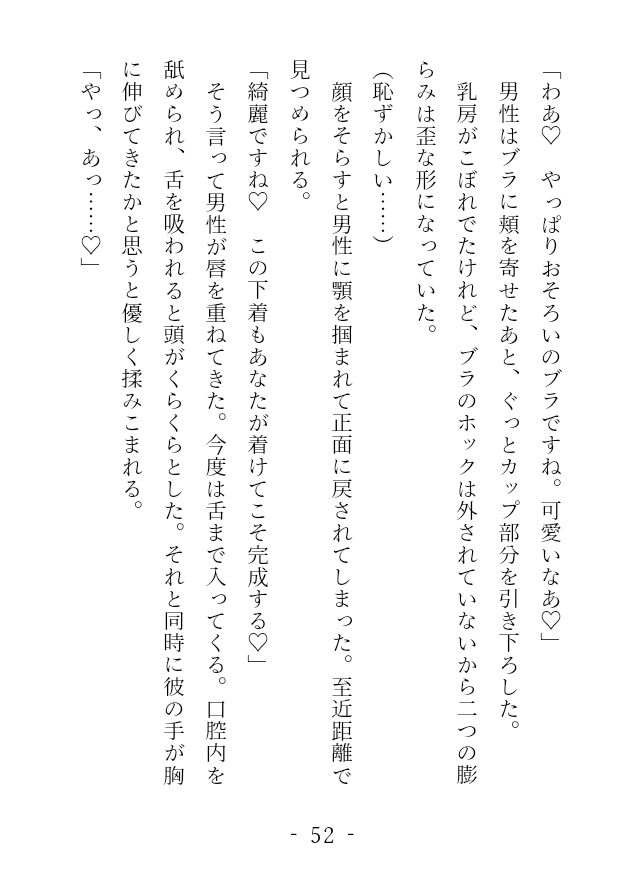 「わあ♡　やっぱりおそろいのブラですね。可愛いなあ♡」
　男性はブラに頬を寄せたあと、ぐっとカップ部分を引き下ろした。
　乳房がこぼれでたけれど、ブラのホックは外されていないから二つの膨
らみは歪な形になっていた。
（恥ずかしい……）
　顔をそらすと男性に顎を掴まれて正面に戻されてしまった。至近距離で
見つめられる。
「綺麗ですね♡　この下着もあなたが着けてこそ完成する♡」
　そう言って男性が唇を重ねてきた。今度は舌まで入ってくる。口腔内を
舐められ、舌を吸われると頭がくらくらとした。それと同時に彼の手が胸
に伸びてきたかと思うと優しく揉みこまれる。
「やっ、あっ……♡」
- 52 -